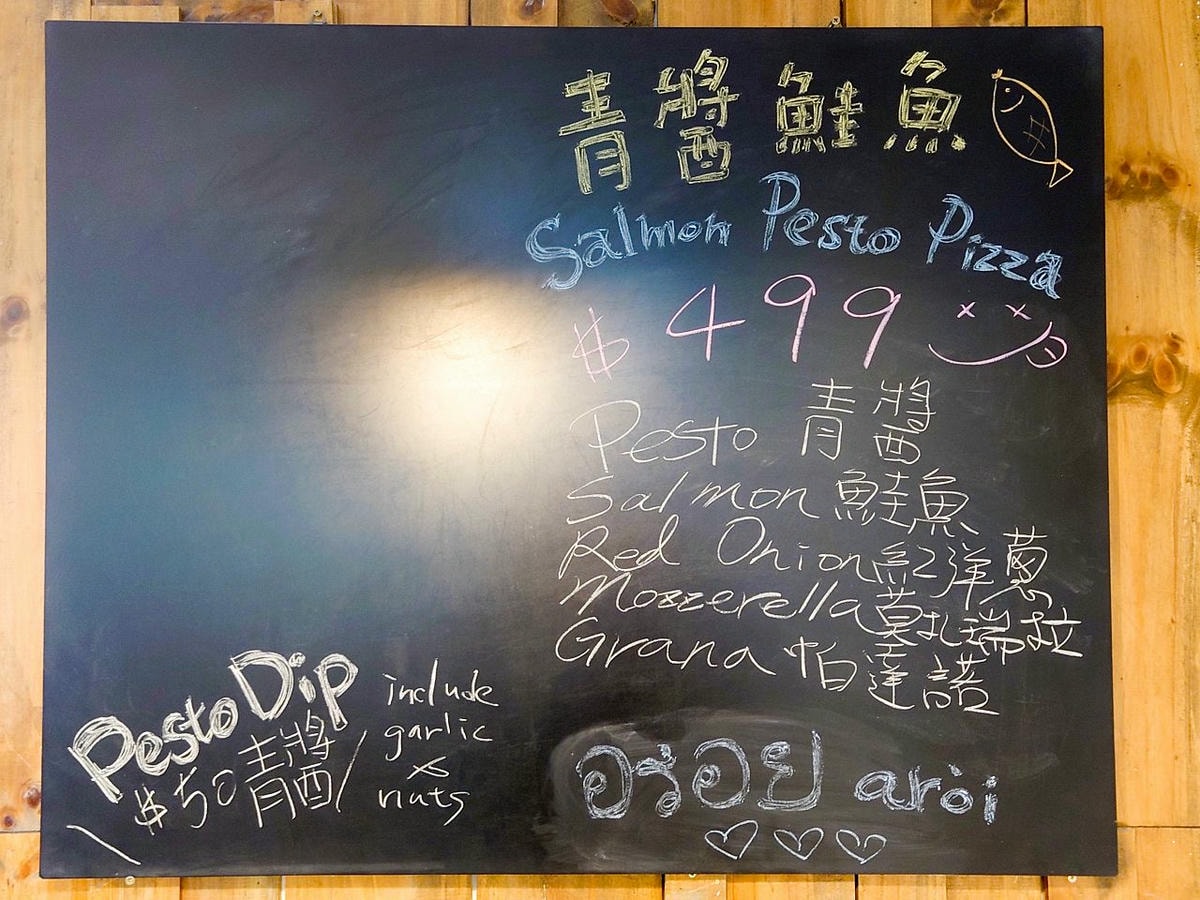 青醬鮭魚
Salmon Pesto Pizza
$499
Pesto 青醬
Salmon 鮭魚
Red Onion 紅洋蔥
Mozzerella 莫扎瑞拉
Grana 帕達諾
อร่อย aròi
Pesto Dip
$50 青醬
include
garlic
&
nuts